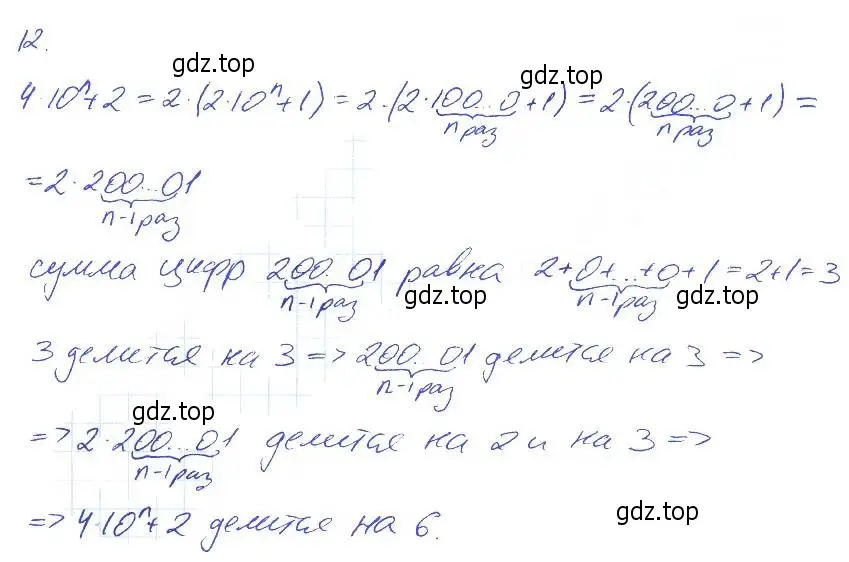 12.
gdz.top gdz.top
4·10ⁿ+2 = 2·(2·10ⁿ+1) = 2·(2·100...0+1) = 2·(200...0+1) =
n раз n раз
= 2·200...01
n-1 раз
сумма цифр 200...01 равна 2+0+...+0+1=2+1=3
n-1 раз gdz.top n-1 раз gdz.top
3 делится на 3 => 200...01 делится на 3 =>
n-1 раз
gdz.top
=> 2·200...01 делится на 2 и на 3 =>
n-1 раз
=> 4·10ⁿ+2 делится на 6.
gdz.top